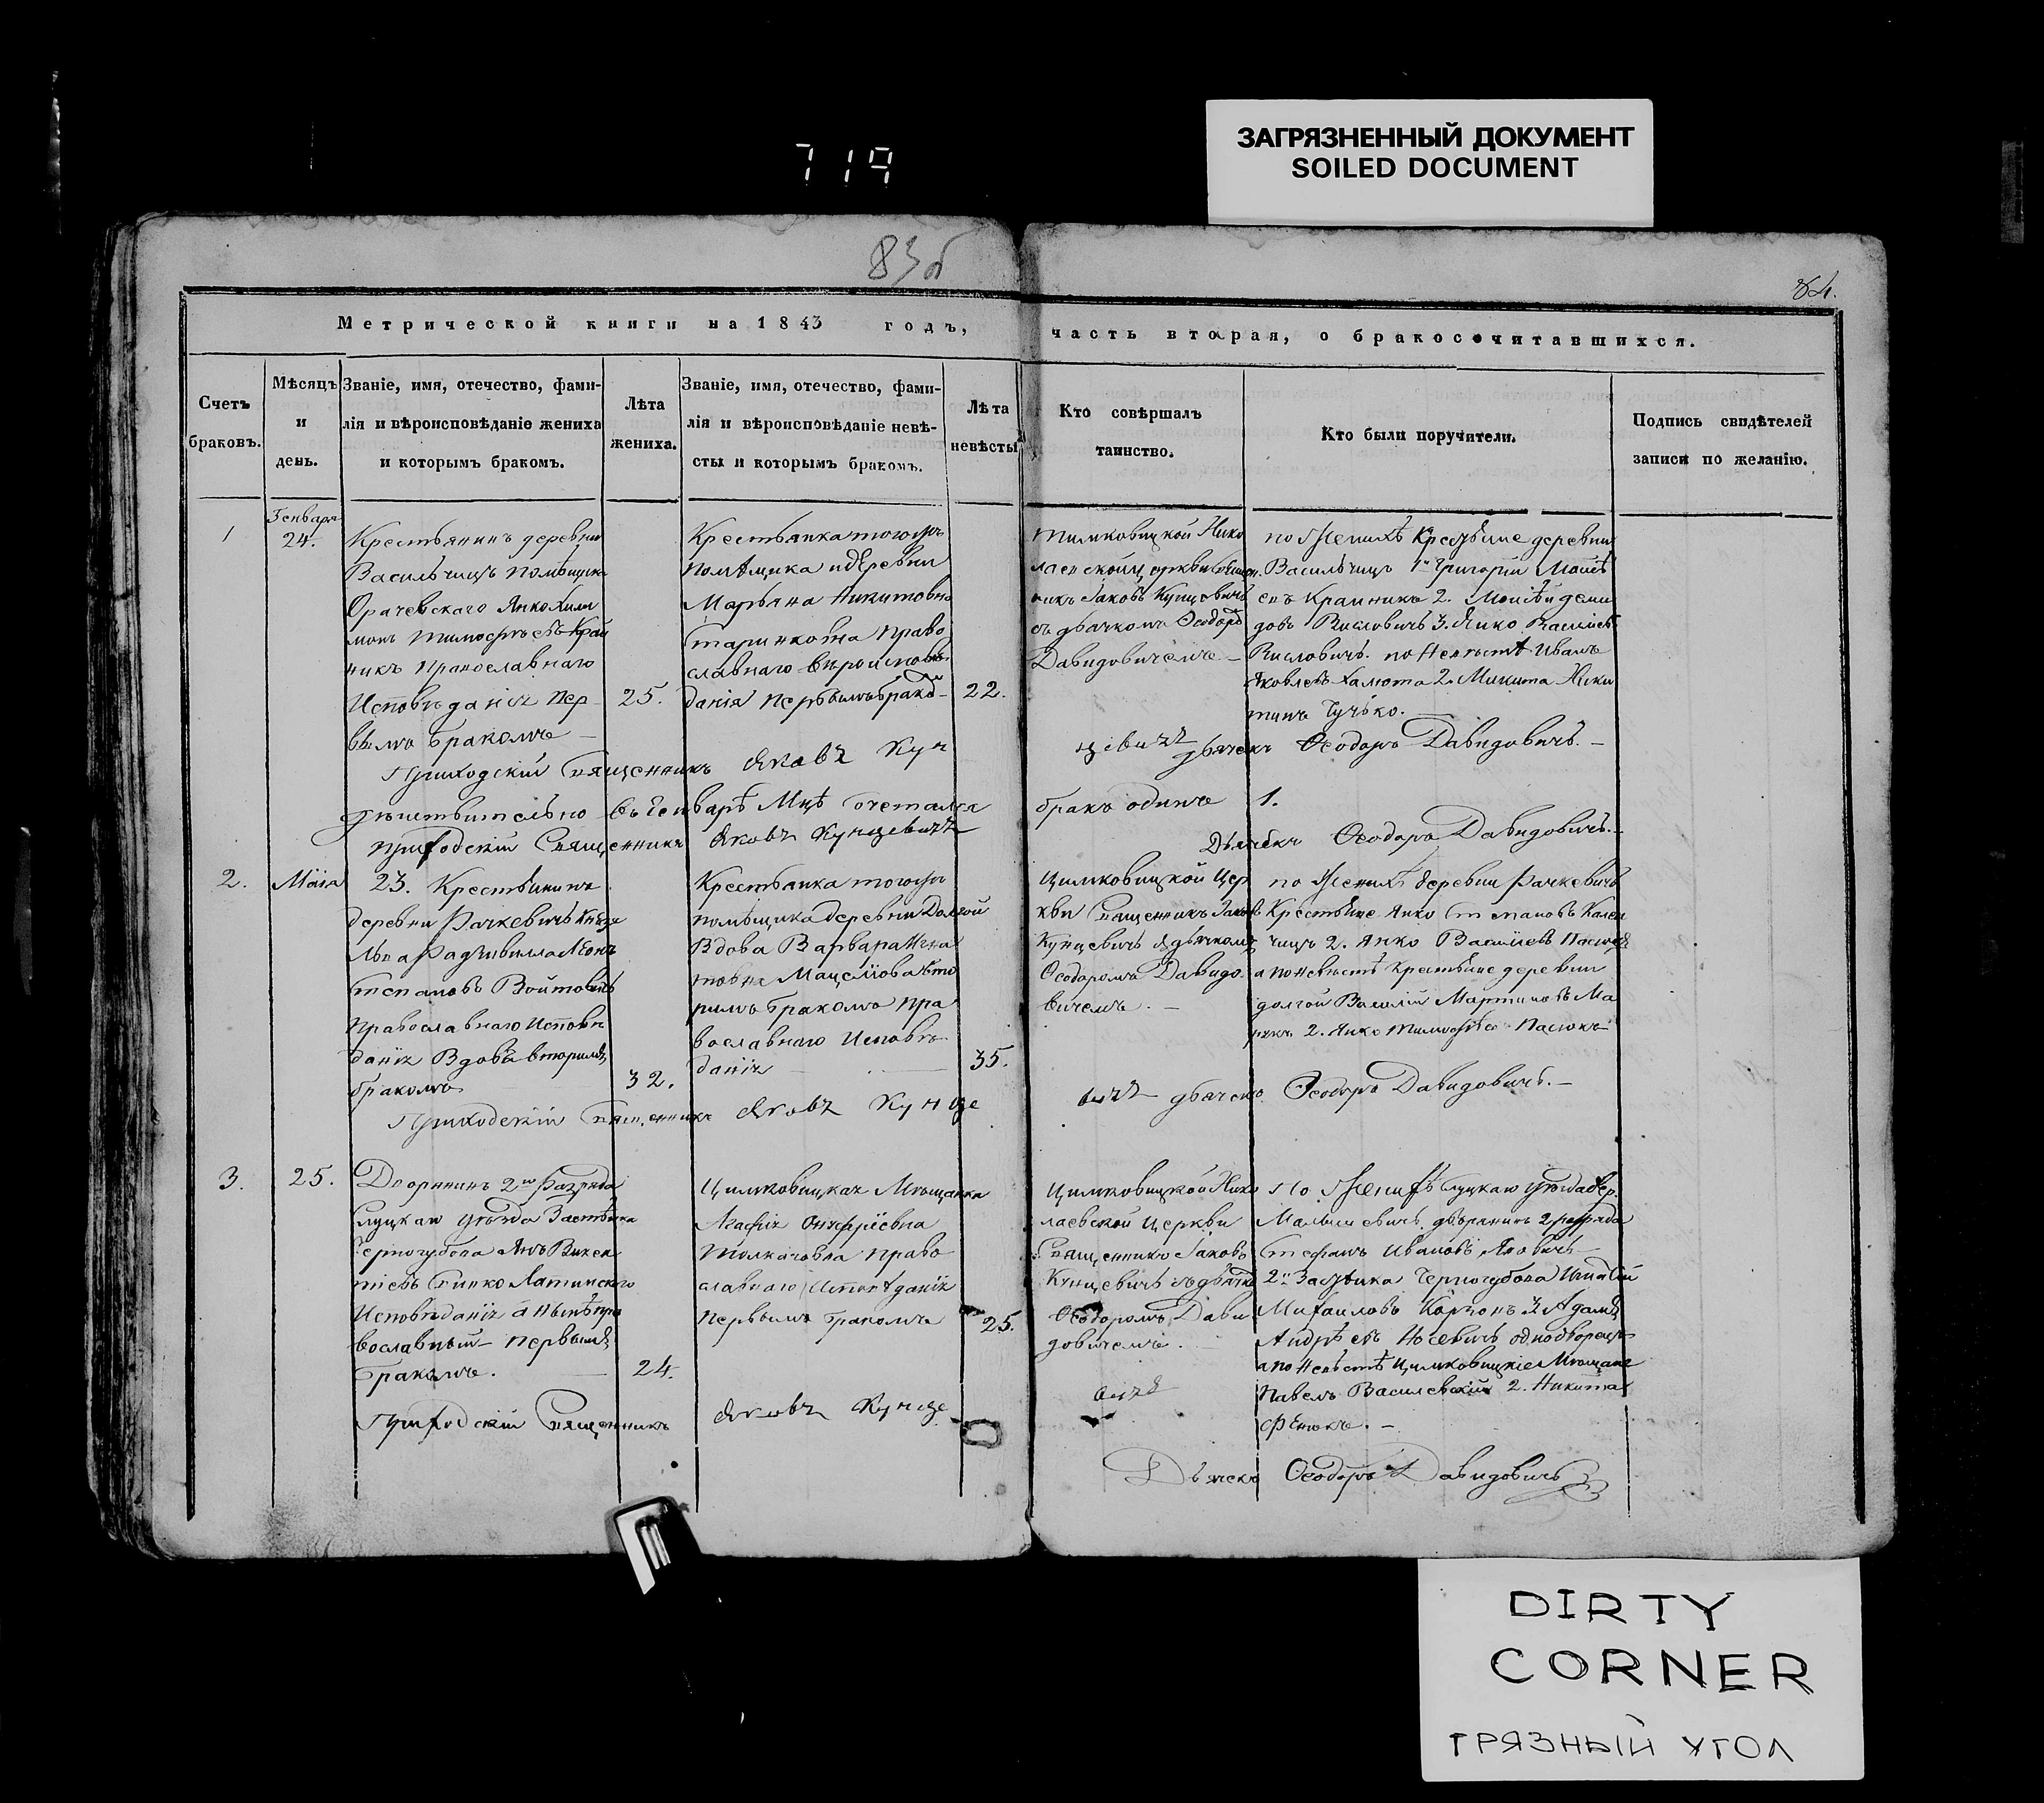 ЗАГРЯЗНЕННЫЙ ДОКУМЕНТ
SOILED DOCUMENT
719
83об
84.
Метрической книги на 1843 годъ,
часть вторая, о бракосочитавшихся.
Счетъ
браковъ.
Мѣсяцъ
и
день.
Званіе, имя, отечество, фами-
лія и вѣроисповѣданіе жениха
и которымъ бракомъ.
Лѣта
жениха.
Званіе, имя, отечество, фами-
лія и вѣроисповѣданіе невѣ-
сты и которымъ бракомъ.
Лѣта
невѣсты
Кто совѣршалъ
таинство.
Кто были поручители.
Подпись свидѣтелей
записи по желанію.
1
Генваря
24.
Крестьянинъ деревни
Васильчицъ помѣщика
Янко
Тимофѣевъ Край
никъ православнаго
Исповѣданія пер-
вымъ бракомъ —
25.
Крестьянка тогожъ
помѣщика и деревни
Марьяна Никитовна
право
славнаго вѣроисповѣ
данія первымъ бракъ-
22.
Тимковицкой Нико
лаевской церкви Священ.
никъ Іаковъ Кунцевичъ
съ дьячкомъ Ѳеодоръ
Давидовичемъ —
по Женихѣ Крестьяне деревни
Васильчицъ 1й Григорій Моисѣ
евъ Крайникъ 2. Моисѣй Деми
довъ Кисловичъ 3. Янко Василіевъ
Кисловичъ. по Невѣстѣ Иванъ
Яковлевъ Халюта 2. Микита Ники
тинъ Чучко.
Приходскій Священникъ Яковъ Кун
цевичъ дьячекъ Ѳеодоръ Давидовичъ. —
дѣйствительно въ Генварѣ Мцѣ сочетался
бракъ одинъ 1.
приходскій Священникъ Яковъ Кунцевичъ
Дьячекъ Ѳеодоръ Давидовичъ. —
2.
Маія
23. Крестьянинъ
деревни Рачкевичъ Князя
Льва Радзивилла Леонъ
Степановъ Войтовичъ
православнаго Исповѣ
данія Вдовъ вторымъ
бракомъ
32.
Крестьянка тогожъ
помѣщика деревни Долгой
Вдова Варвара Игна
товна вто
рымъ бракомъ пра
вославнаго Исповѣ
данія
35.
Цимковицкой Цер
кви Священникъ Іаковъ
Кунцевичъ съ дьячкомъ
Ѳеодоромъ Давидо
вичемъ. —
по Женихѣ деревни Рачкевичъ
Крестьяне Янко Степановъ
2. Янко Василіевъ
а по невѣстѣ Крестьяне деревни
долгой Василій Мартиновъ Ма
2. Янко Тимофѣевъ Пасюкъ
Приходскій Священникъ Яковъ Кунце
вичъ дьячекъ Ѳеодоръ Давидовичъ. —
3.
25.
Дворянинъ 2го Разряда
Слуцкаго уѣзда Застѣнка
Черногубова Янъ Викен
тіевъ Латинского
Исповѣданія а нынѣ пра
вославный — первымъ
бракомъ.
24.
Цимковицкая Мѣщанка
Агафія Онуфріевна
Толкачовна право
славнаго Исповѣданія
первымъ бракомъ
25.
Цимковицкой Нико
лаевской церкви
Священникъ Іаковъ
Кунцевичъ съ дьячко
Ѳеодоромъ Дави
довичемъ.
По Женихѣ Слуцкаго уѣзда дер.
дворянинъ 2 разряда
Стефанъ Ивановъ
2й Застѣнка Черногубова Игнатій
Михайловъ Корзонъ 3й Адамъ
Андрѣевъ Носевичъ однодворецъ
а по Невѣстѣ Цимковицкіе Мѣщане
Павелъ Василевскій 2. Никита
Фенюкъ. —
Приходскій Священникъ Яковъ Кунце
вичъ
Дьячекъ Ѳеодоръ Давидовичъ
DIRTY
CORNER
ГРЯЗНЫЙ УГОЛ